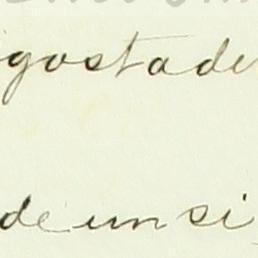 igostade
de un si